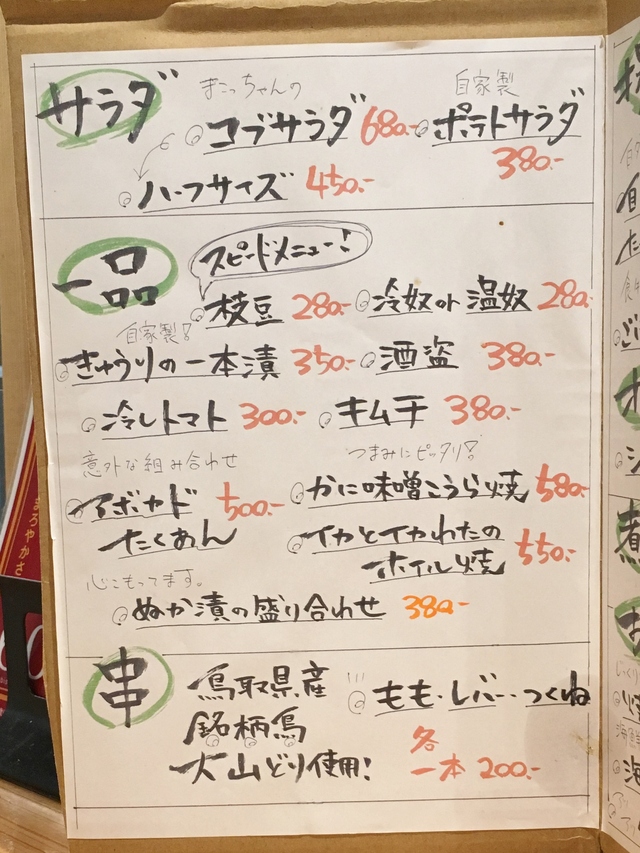 サラダ
まこっちゃんの
コブサラダ 680.-
自家製
ポテトサラダ
380.-
ハーフサイズ 450.-
一品
スピードメニュー!
枝豆 280.- 冷奴or温奴 280.-
自家製!
きゅうりの一本漬 350.- 酒盗 380.-
冷しトマト 300.- キムチ 380.-
意外な組み合わせ
アボカド
たくあん
500.-
つまみにピッタリ!
かに味噌こうら焼 580.-
イカとイカわたの
ホイル焼 550.-
心こもってます。
ぬか漬の盛り合わせ 380.-
串
鳥取県産
銘柄鳥
大山どり使用!
もも・レバー・つくね
各
一本 200.-
まろやかさ